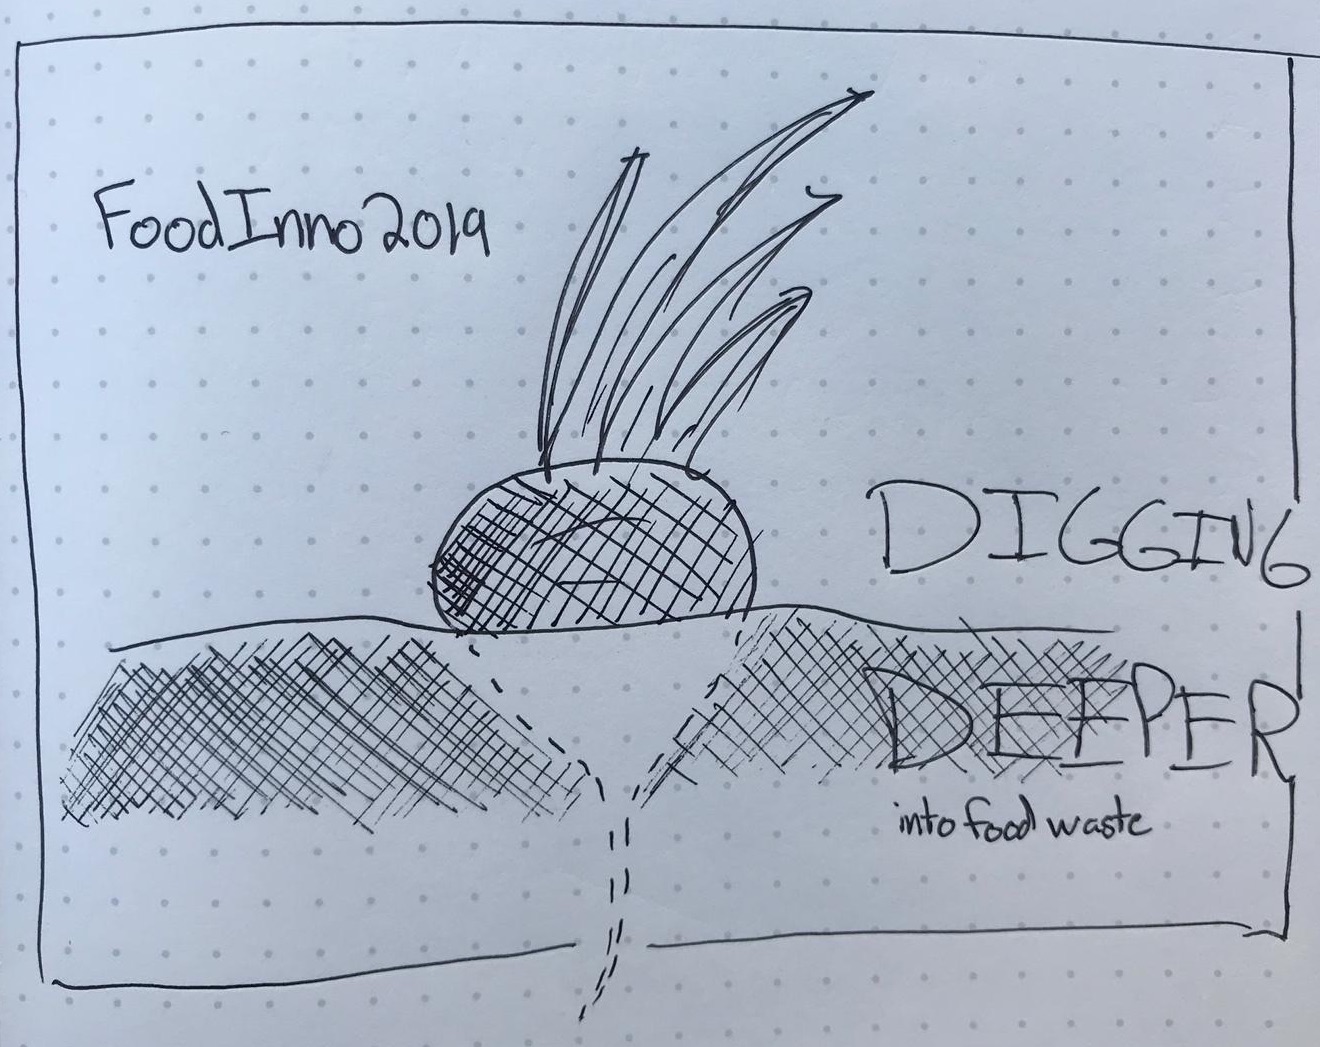 FoodInno2019
DIGGING
DEEPER
into food waste